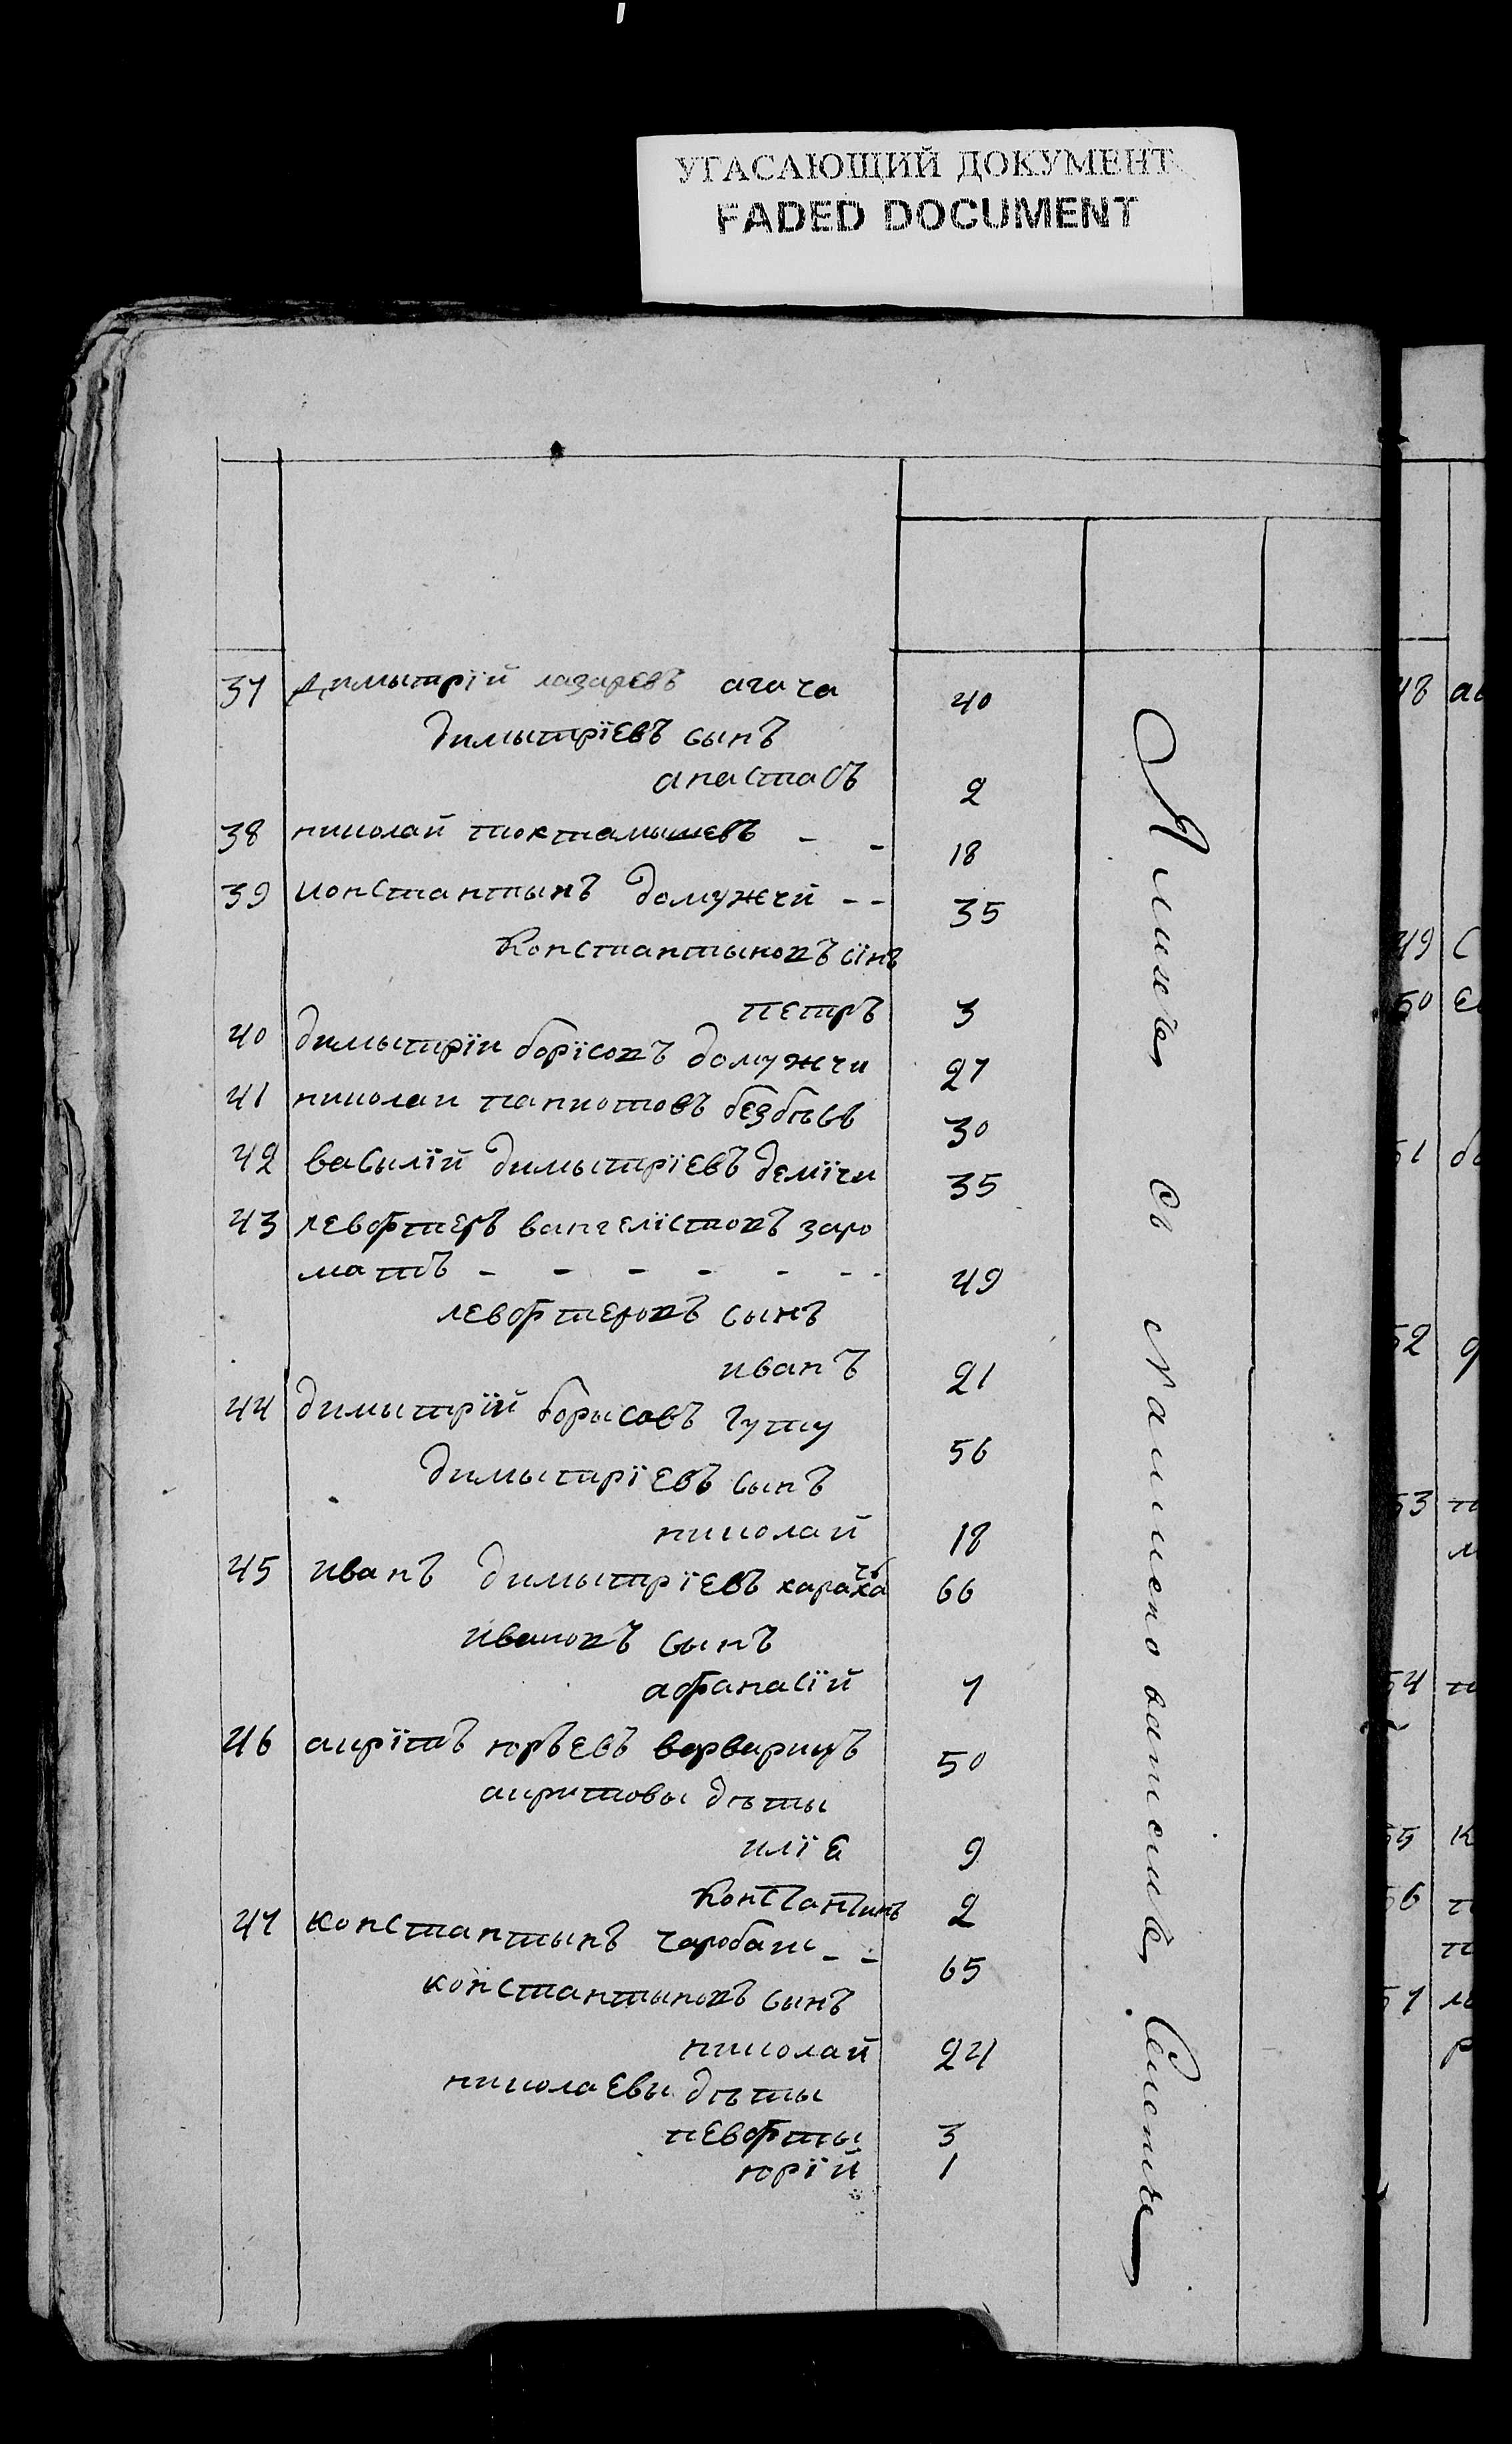 УГАСАЮЩИЙ ДОКУМЕНТ
FADED DOCUMENT
37 Димытрїй лазаревъ агача 40
Димытрїевъ сынъ
анастасъ 2
38 николай токтамышевъ - - 18
39 константынъ домужчй - - 35
Константыновъ сїнъ
петръ 3
40 димытрїи борїсовъ домужчи 27
41 николаи папиотовъ 30
42 василїй димытрїевъ демїчи 35
43 левфтеръ вангелїстовъ заро
матъ - - - - - - - 49
левфтеровъ сынъ
иванъ 21
44 димытрїй борысовъ гуту 56
димытрїевъ сынъ
николай 18
45 иванъ димытрїевъ 66
ивановъ сынъ
афанасїй 7
46 кирїтъ юрьевъ 50
киритовы дѣты
илїе 9
Константинъ 2
47 константынъ чаробаш - - 65
константыновъ сынъ
николай 24
николаевы дѣты
левфты 3
юрїй 1
48
49 С
50
51
52
53
54
55
56
57